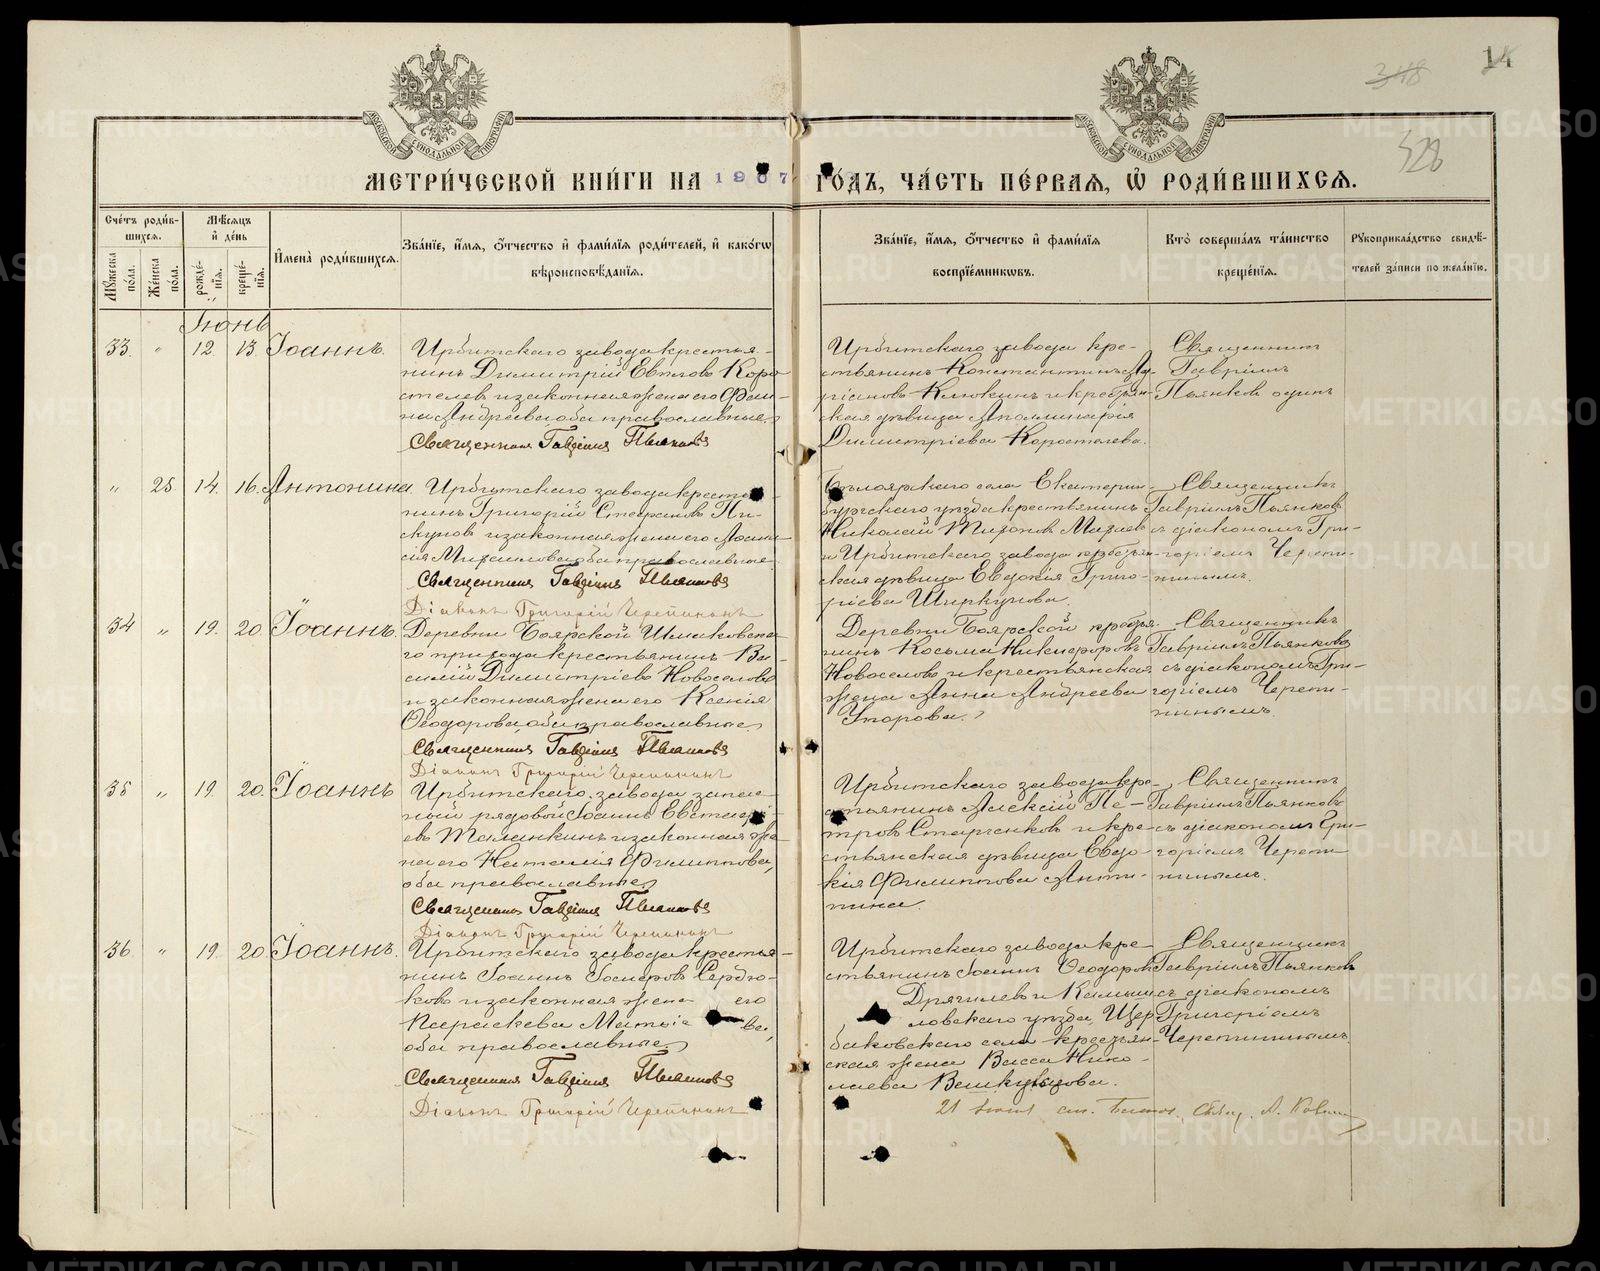 348
14
528
МОСКОВСКОЙ СѴНОДАЛЬНОЙ ТИПОГРАФІИ
МОСКОВСКОЙ СѴНОДАЛЬНОЙ ТИПОГРАФІИ
МЕТРИ́ЧЕСКОЙ КНИ́ГИ НА 1907 ГО́ДЪ, ЧА́СТЬ ПЕ́РВАЯ, Ѿ РОДИ́ВШИХСЯ.
Сче́тъ роди́в-
шихся.
Мѣ́сяцъ
и҆ де́нь
Мꙋ́жеска по́ла.
Же́нска по́ла.
рожде́-
нїя.
креще́-
нїя.
И҆мена̀ роди́вшихся.
Зва́нїе, и҆́мя, ѻ҆́тчество и҆ фами́лїя роди́телей, и҆ како́гѡ
вѣроисповѣ́данїя.
Зва́нїе, и҆́мя, ѻ҆́тчество и҆ фами́лїя
воспрїе́мникѡвъ.
Кто̀ соверша́лъ та́инство
креще́нїя.
Рꙋкоприкла́дство свидѣ́-
телей за́писи по жела́нїю.
Іюнь
33. " 12. 13. Іоаннъ.
Ирбитскаго завода крестья-
нинъ Димитрій Евтловъ Коро
стелев и законная жена его Фаи-
на Андреева, оба православные.
Священникъ Гавріилъ Пьянковъ
Ирбитскаго завода кре-
стьянинъ Константинъ Ад-
ріановъ Клюкинъ и крестьян-
ская дѣвица Аполлинарія
Димитріева Коросталева.
Священникъ
Гавріилъ
Пьянков один
" 25 14. 16. Антонина.
Ирбитскаго завода крестья
нинъ Григорій Стефановъ Пи-
скунов и законная жена его
Михаилова, оба православные.
Священникъ Гавріилъ Пьянковъ
Діаконъ Григорій Черепанинъ
Бѣлоярскаго села Екатерин-
бургскаго уѣзда крестьянинъ
Николай Тихонов
и Ирбитскаго завода крестьян-
ская дѣвица Евдокія Григо-
ріева Ширкунова.
Священникъ
Гавріилъ Пьянков
съ діакономъ Гри-
горіемъ Черепа-
нинымъ.
34 " 19. 20. Іоаннъ.
Деревни Боярской Шмаковска-
го прихода крестьянинъ Ва-
силій Димитріевъ Новоселовъ
и законная жена его Ксенія
Ѳеодорова, оба православные.
Священникъ Гавріилъ Пьянковъ
Діаконъ Григорій Черепанинъ
Деревни Боярской крестья-
нинъ Косьма Никифоровъ
Новоселовъ и крестьянская
жена Анна Андреева
Упорова.
Священникъ
Гавріилъ Пьянковъ
съ діакономъ Гри-
горіемъ Черепа-
нинымъ
35 " 19. 20. Іоаннъ
Ирбитскаго завода запас-
ный рядовой Іоаннъ Евстафі-
евъ Таланкинъ и законная же
на его Наталія Филиппова,
оба православные.
Священникъ Гавріилъ Пьянковъ
Діаконъ Григорій Черепанинъ
Ирбитскаго завода кре-
стьянинъ Алексій Пе-
тров Старченков и кре-
стьянская дѣвица Евдо-
кія Филиппова Анти-
пина.
Священникъ
Гавріилъ Пьянковъ
съ діакономъ Гри-
горіемъ Черепа-
нинымъ.
36. " 19. 20 Іоаннъ.
Ирбитскаго завода крестья-
нинъ Іоаннъ Сердю-
ковъ и законная жена его
Параскева
оба православные.
Священникъ Гавріилъ Пьянковъ
Діаконъ Григорій Черепанинъ
Ирбитскаго завода кре-
стьянинъ Іоаннъ Ѳеодоров
Дрягилевъ и Камыш-
ловскаго уѣзда, Щер-
баковскаго села крестьян-
ская жена Васса Нико-
лаева
Священник
Гавріилъ Пьянков
съ діакономъ
Григоріемъ
Черепанинымъ.
21 Священ.
METRIKI.GASO-URAL.RU